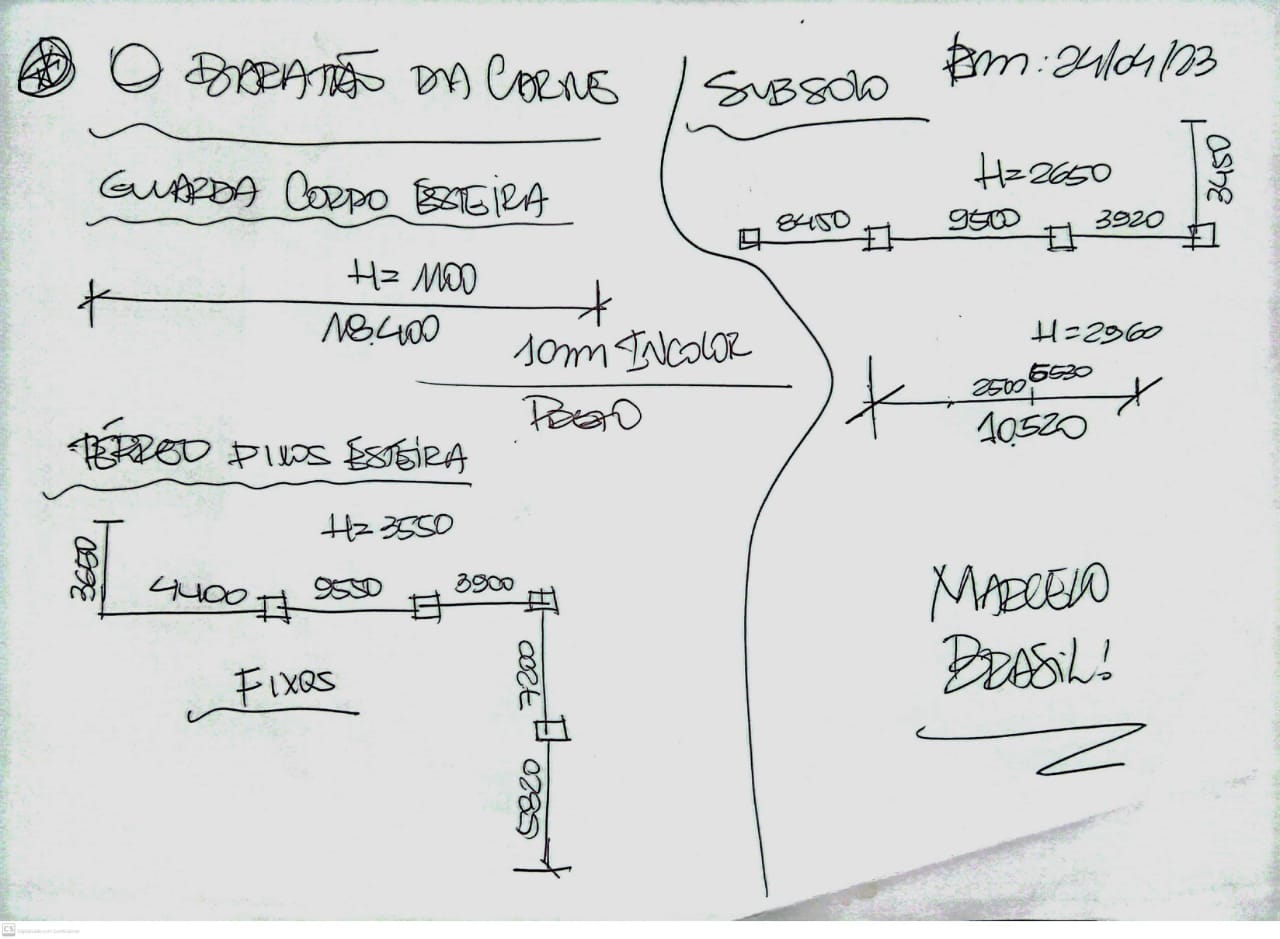 O BARATÃO DA CARNE
GUARDA CORPO ESTEIRA
H= 1100
18.400
10mm INCOLOR
TÉRREO FIXOS ESTEIRA
H= 3550
3650
4400
9550
3900
7200
5820
FIXOS
SUBSOLO
Bm: 24/04/23
H= 2650
8450
9500
3920
3450
H= 2960
2500
5530
10.520
MARCELO
BRASIL!
CS